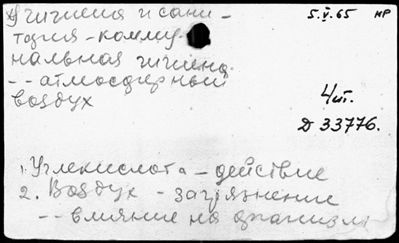 Гигиена и сани-
тария - комму-
нальная гигиена
-- атмосферный
воздух
5.V.65 НР
4 чт.
D 33776.
1. Углекислота - действие
2. Воздух - загрязнение
-- влияние на организм